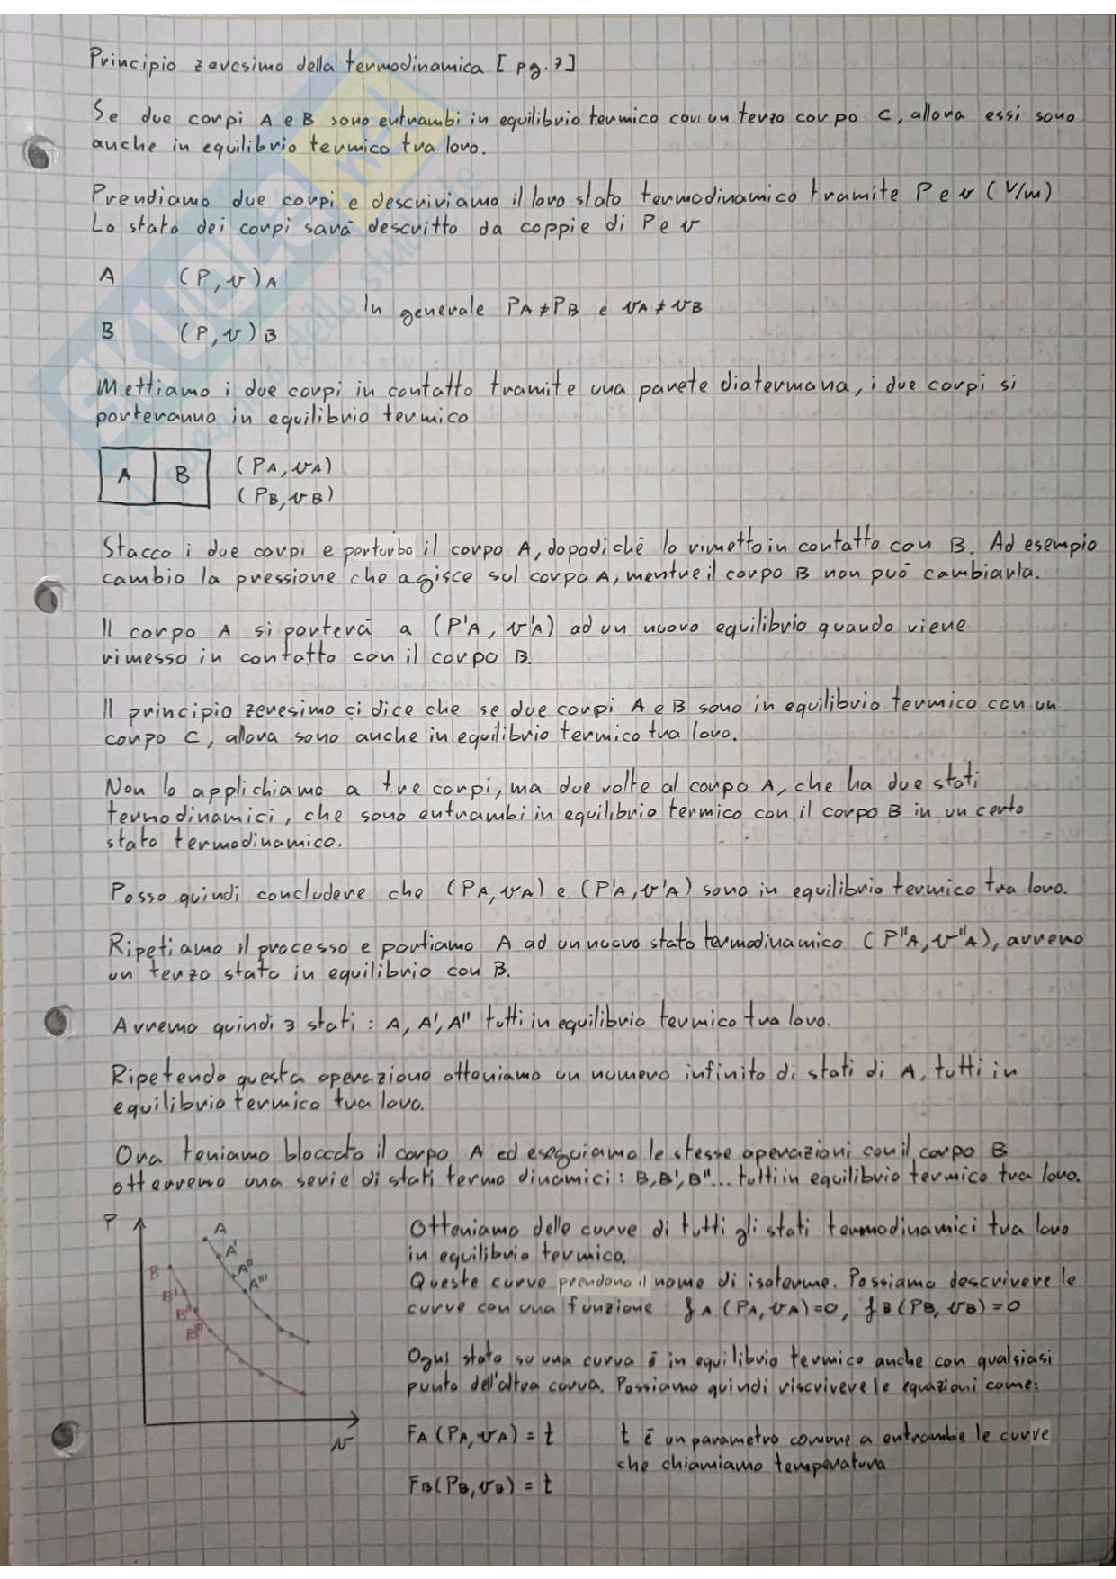 Principio zeresimo della termodinamica [pg.7]
Se due corpi A e B sono entrambi in equilibrio termico con un terzo corpo C, allora essi sono
anche in equilibrio termico tra loro.
Prendiamo due corpi e descriviamo il loro stato termodinamico tramite P e v (V/m)
Lo stato dei corpi sarà descritto da coppie di P e v
A (P,v)A
In generale PA≠PB e vA≠vB
B (P,v)B
Mettiamo i due corpi in contatto tramite una parete diatermana, i due corpi si
porteranno in equilibrio termico
A B (PA,vA)
(PB,vB)
Stacco i due corpi e perturbo il corpo A, dopodiché lo rimetto in contatto con B. Ad esempio
cambio la pressione che agisce sul corpo A, mentre il corpo B non può cambiarla.
Il corpo A si porterà a (P'A, v'A) ad un nuovo equilibrio quando viene
rimesso in contatto con il corpo B.
Il principio zeresimo ci dice che se due corpi A e B sono in equilibrio termico con un
corpo C, allora sono anche in equilibrio termico tra loro.
Non lo applichiamo a tre corpi, ma due volte al corpo A, che ha due stati
termodinamici, che sono entrambi in equilibrio termico con il corpo B in un certo
stato termodinamico.
Posso quindi concludere che (PA,vA) e (P'A,v'A) sono in equilibrio termico tra loro.
Ripetiamo il processo e portiamo A ad un nuovo stato termodinamico (P"A,v"A), avremo
un terzo stato in equilibrio con B.
Avremo quindi 3 stati: A, A', A" tutti in equilibrio termico tra loro.
Ripetendo questa operazione otteniamo un numero infinito di stati di A, tutti in
equilibrio termico tra loro.
Ora teniamo bloccato il corpo A ed eseguiamo le stesse operazioni con il corpo B
otterremo una serie di stati termodinamici: B,B',B"... tutti in equilibrio termico tra loro.
P
A
A'
A"
A'''
B
B'
B"
B'''
v
Otteniamo delle curve di tutti gli stati termodinamici tra loro
in equilibrio termico.
Queste curve prendono il nome di isoterme. Possiamo descrivere le
curve con una funzione fA(PA,vA)=0, fB(PB,vB)=0
Ogni stato su una curva è in equilibrio termico anche con qualsiasi
punto dell'altra curva. Possiamo quindi riscrivere le equazioni come:
FA(PA,vA)=t t è un parametro comune a entrambe le curve
che chiamiamo temperatura
FB(PB,vB)=t